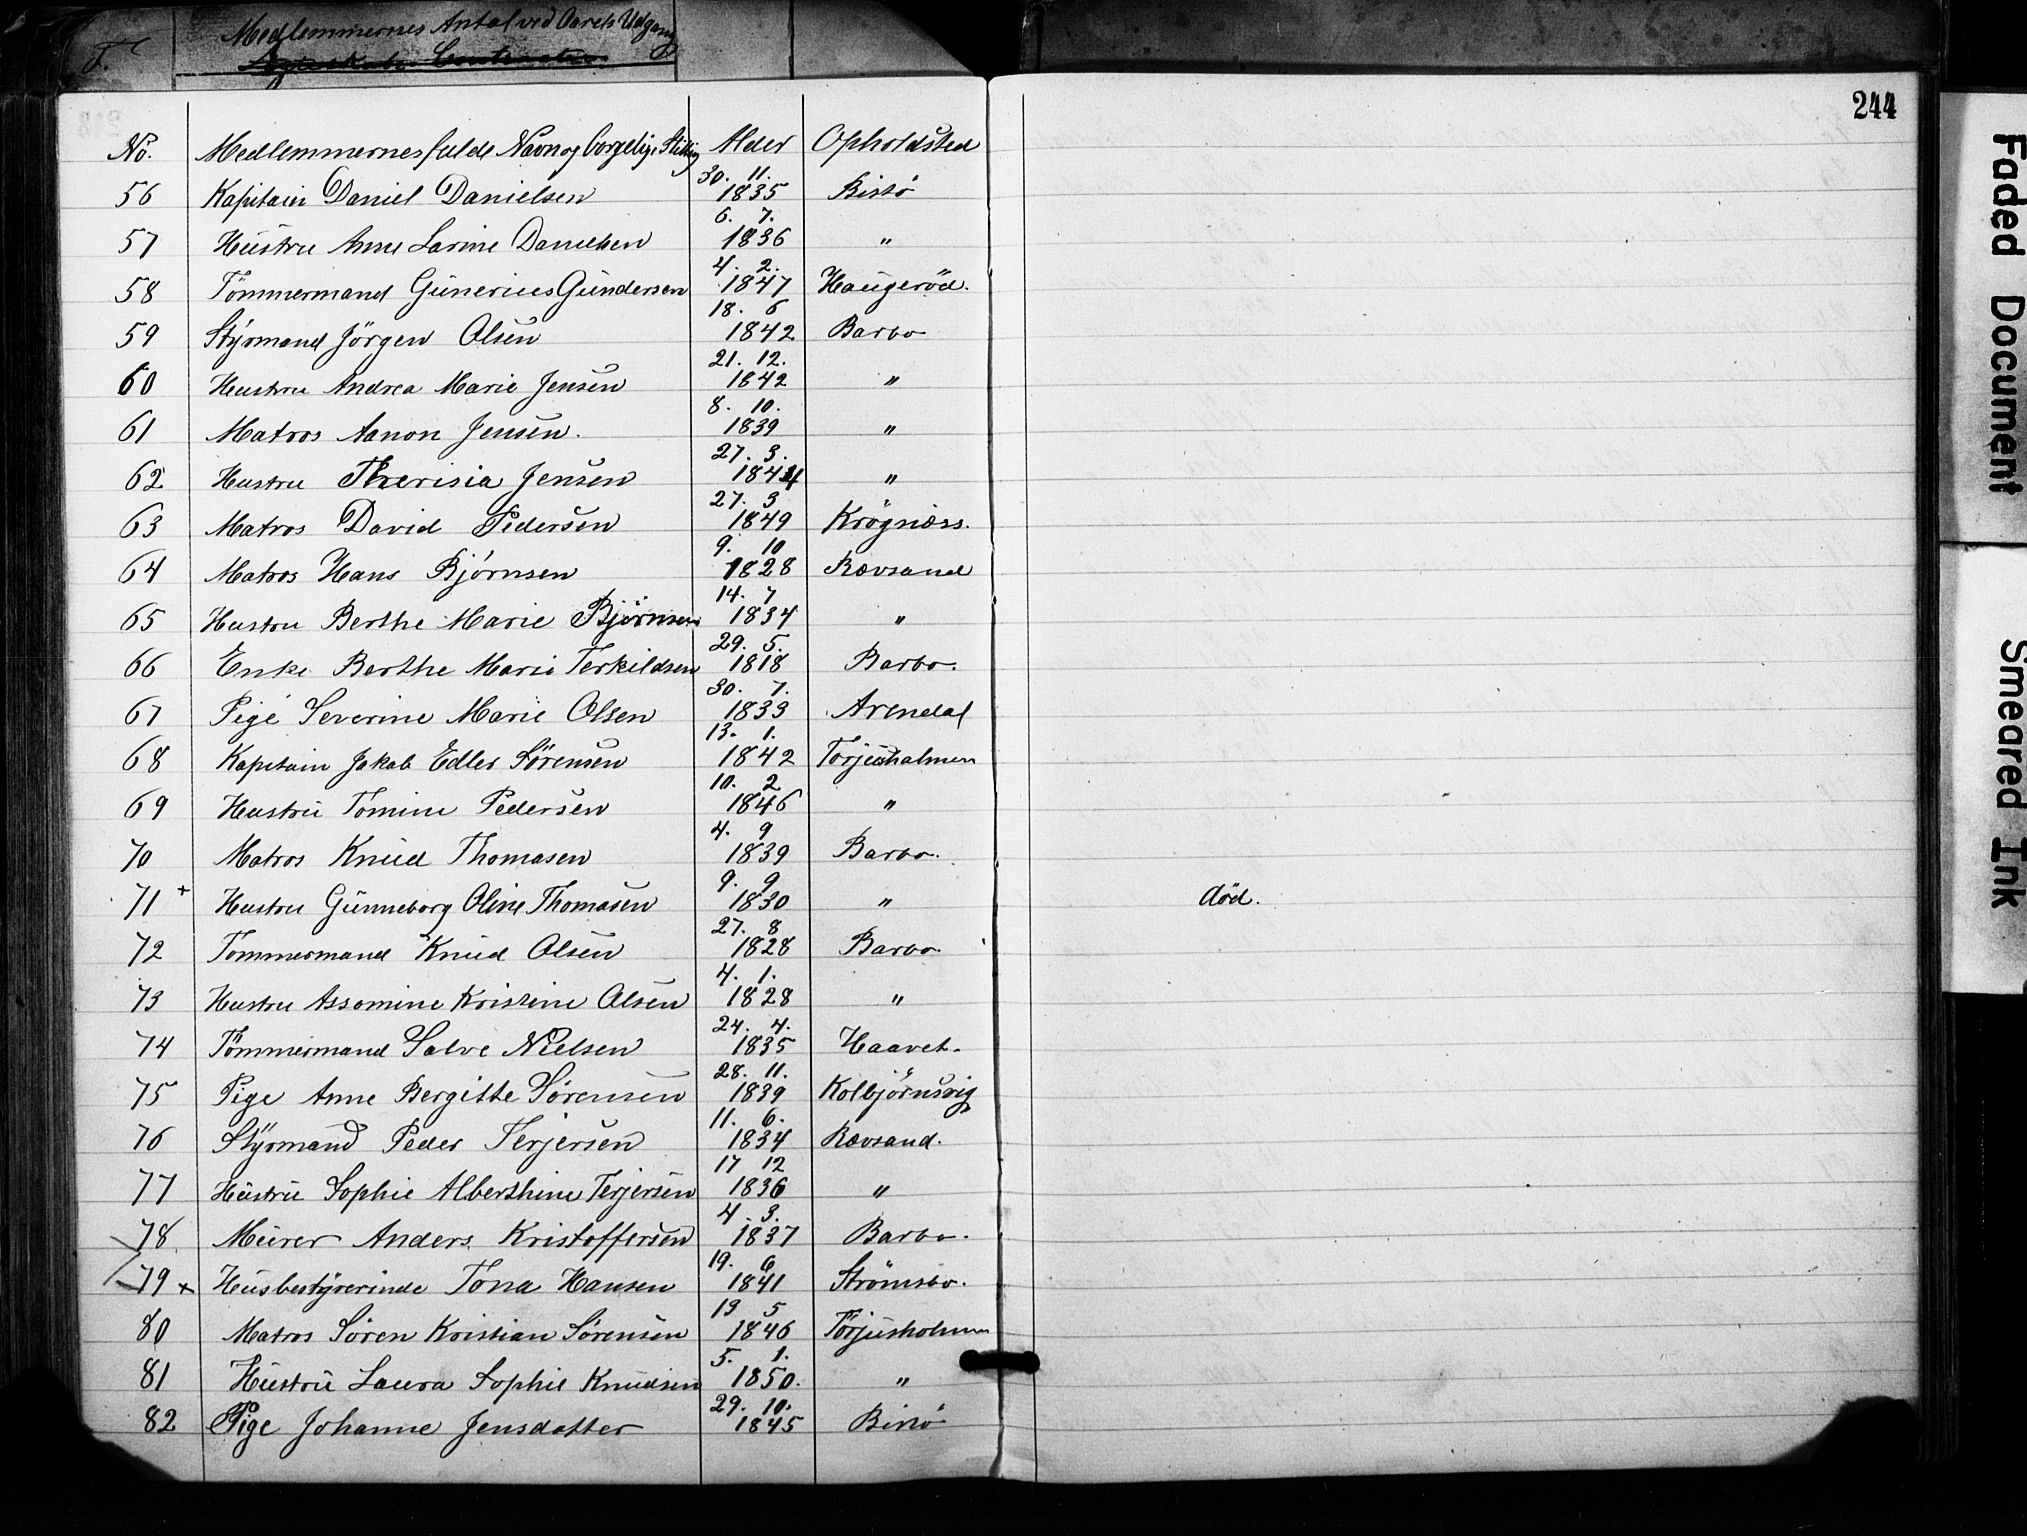 T.
Medlemmernes Antal ved Aarets Udgang
244
No. Medlemmernes fulde Navn og borgelige Stilling Alder Opholdsted
56 Kapitain Daniel Danielsen 30. 11. 1835 Bisö
57 Hustru Anne Larine Danielsen 6. 7. 1836 "
58 Tömmermand Gunerius Gundersen 4. 2. 1847 Haugeröd.
59 Styrmand Jörgen Olsen 18. 6 1842 Barbo
60 Hustru Andrea Marie Jensen 21. 12. 1842 "
61 Matros Aanon Jensen. 8. 10. 1839 "
62 Hustru Therisia Jensen 27. 3. 1844 "
63 Matros David Pedersen 27. 3 1849 Krögnæss.
64 Matros Hans Björnsen 9. 10 1828 Rævsand
65 Hustru Berthe Marie Björnsen 14. 7 1834 "
66 Enke Berthe Marie Terkildsen 29. 5. 1818 Barbo.
67 Pige Severine Marie Olsen 30. 7. 1833 Arendal
68 Kapitain Jakob Edler Sörensen 13. 1. 1842 Torjusholmen
69 Hustru Tomine Pedersen 10. 2 1846 "
70 Matros Knud Thomasen 4. 9 1839 Barbo.
71 + Hustru Gunneborg Oline Thomasen 9. 9 1830 " död.
72 Tömmermand Knud Olsen 27. 8 1828 Barbo
73 Hustru Assomine Kristine Olsen 4. 1. 1828 "
74 Tömmermand Salve Nielsen 24. 4. 1835 Haavet.
75 Pige Anne Bergitte Sörensen 28. 11. 1839 Kolbjörnsvig
76 Styrmand Peder Terjersen 11. 6. 1834 Rævsand.
77 Hustru Sophie Alberthine Terjersen 17 12 1836 "
78 Murer Anders Kristoffersen 4. 3. 1837 Barbo.
79 x Husbestyrerinde Tona Hansen 19. 6 1841 Strömsbo.
80 Matros Sören Kristian Sörensen 13 5 1846 Torjusholmen
81 Hustru Laura Sophie Knudsen 5. 1. 1850. "
82 Pige Johanne Jensdatter 29. 10. 1845 Bisö
Faded Document
Smeared Ink